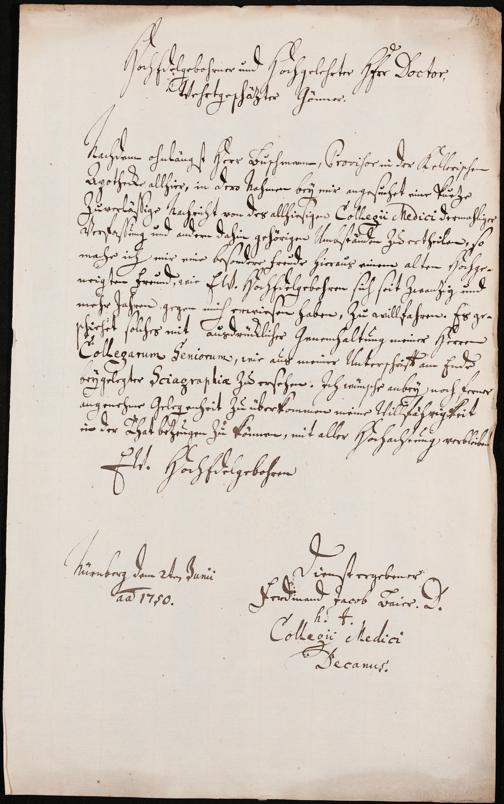 Hochedelgebohrner und Hochgelehrter Herr Doctor,
Wehrtgeschätzter Gönner.
Nachdem ohnlängst Herr Buchmann, Provisor in der Kellerischen
Apothecke allhier, in dero Nahmen bey mir angesuchet eine kurtze
Zuverlässige Nachricht von des allhiesigen Collegii Medici dermahliger
Verfassung und andern dahin gehörigen Umbständen zu ertheilen, so
mache ich mir eine besondere freude hieraus einem alten Hochge-
neigten freund, wie Ew. Hochedelgebohren sich seit zwantzig und
mehr Jahren gegen mich erwiesen haben, zu willfahren. Es ge-
schiehet solches mit ausdrücklicher Genenhaltung meiner Herren
Collegarum Seniorum, wie aus meiner Unterschrifft am Ende
beygelegter Sciagraphiæ zu ersehen. Ich wünsche anbey noch ferner
angenehme Gelegenheit zu überkommen meine Willfährigkeit
in der That bezeugen zu können, mit aller Hochachtung verbleibend
Ew. Hochedelgebohren
Nürnberg den 2ten Junii
aõ 1750.
Dienstergebener
Ferdinand Jacob Baier. D.
h. t.
Collegii Medici
Decanus.